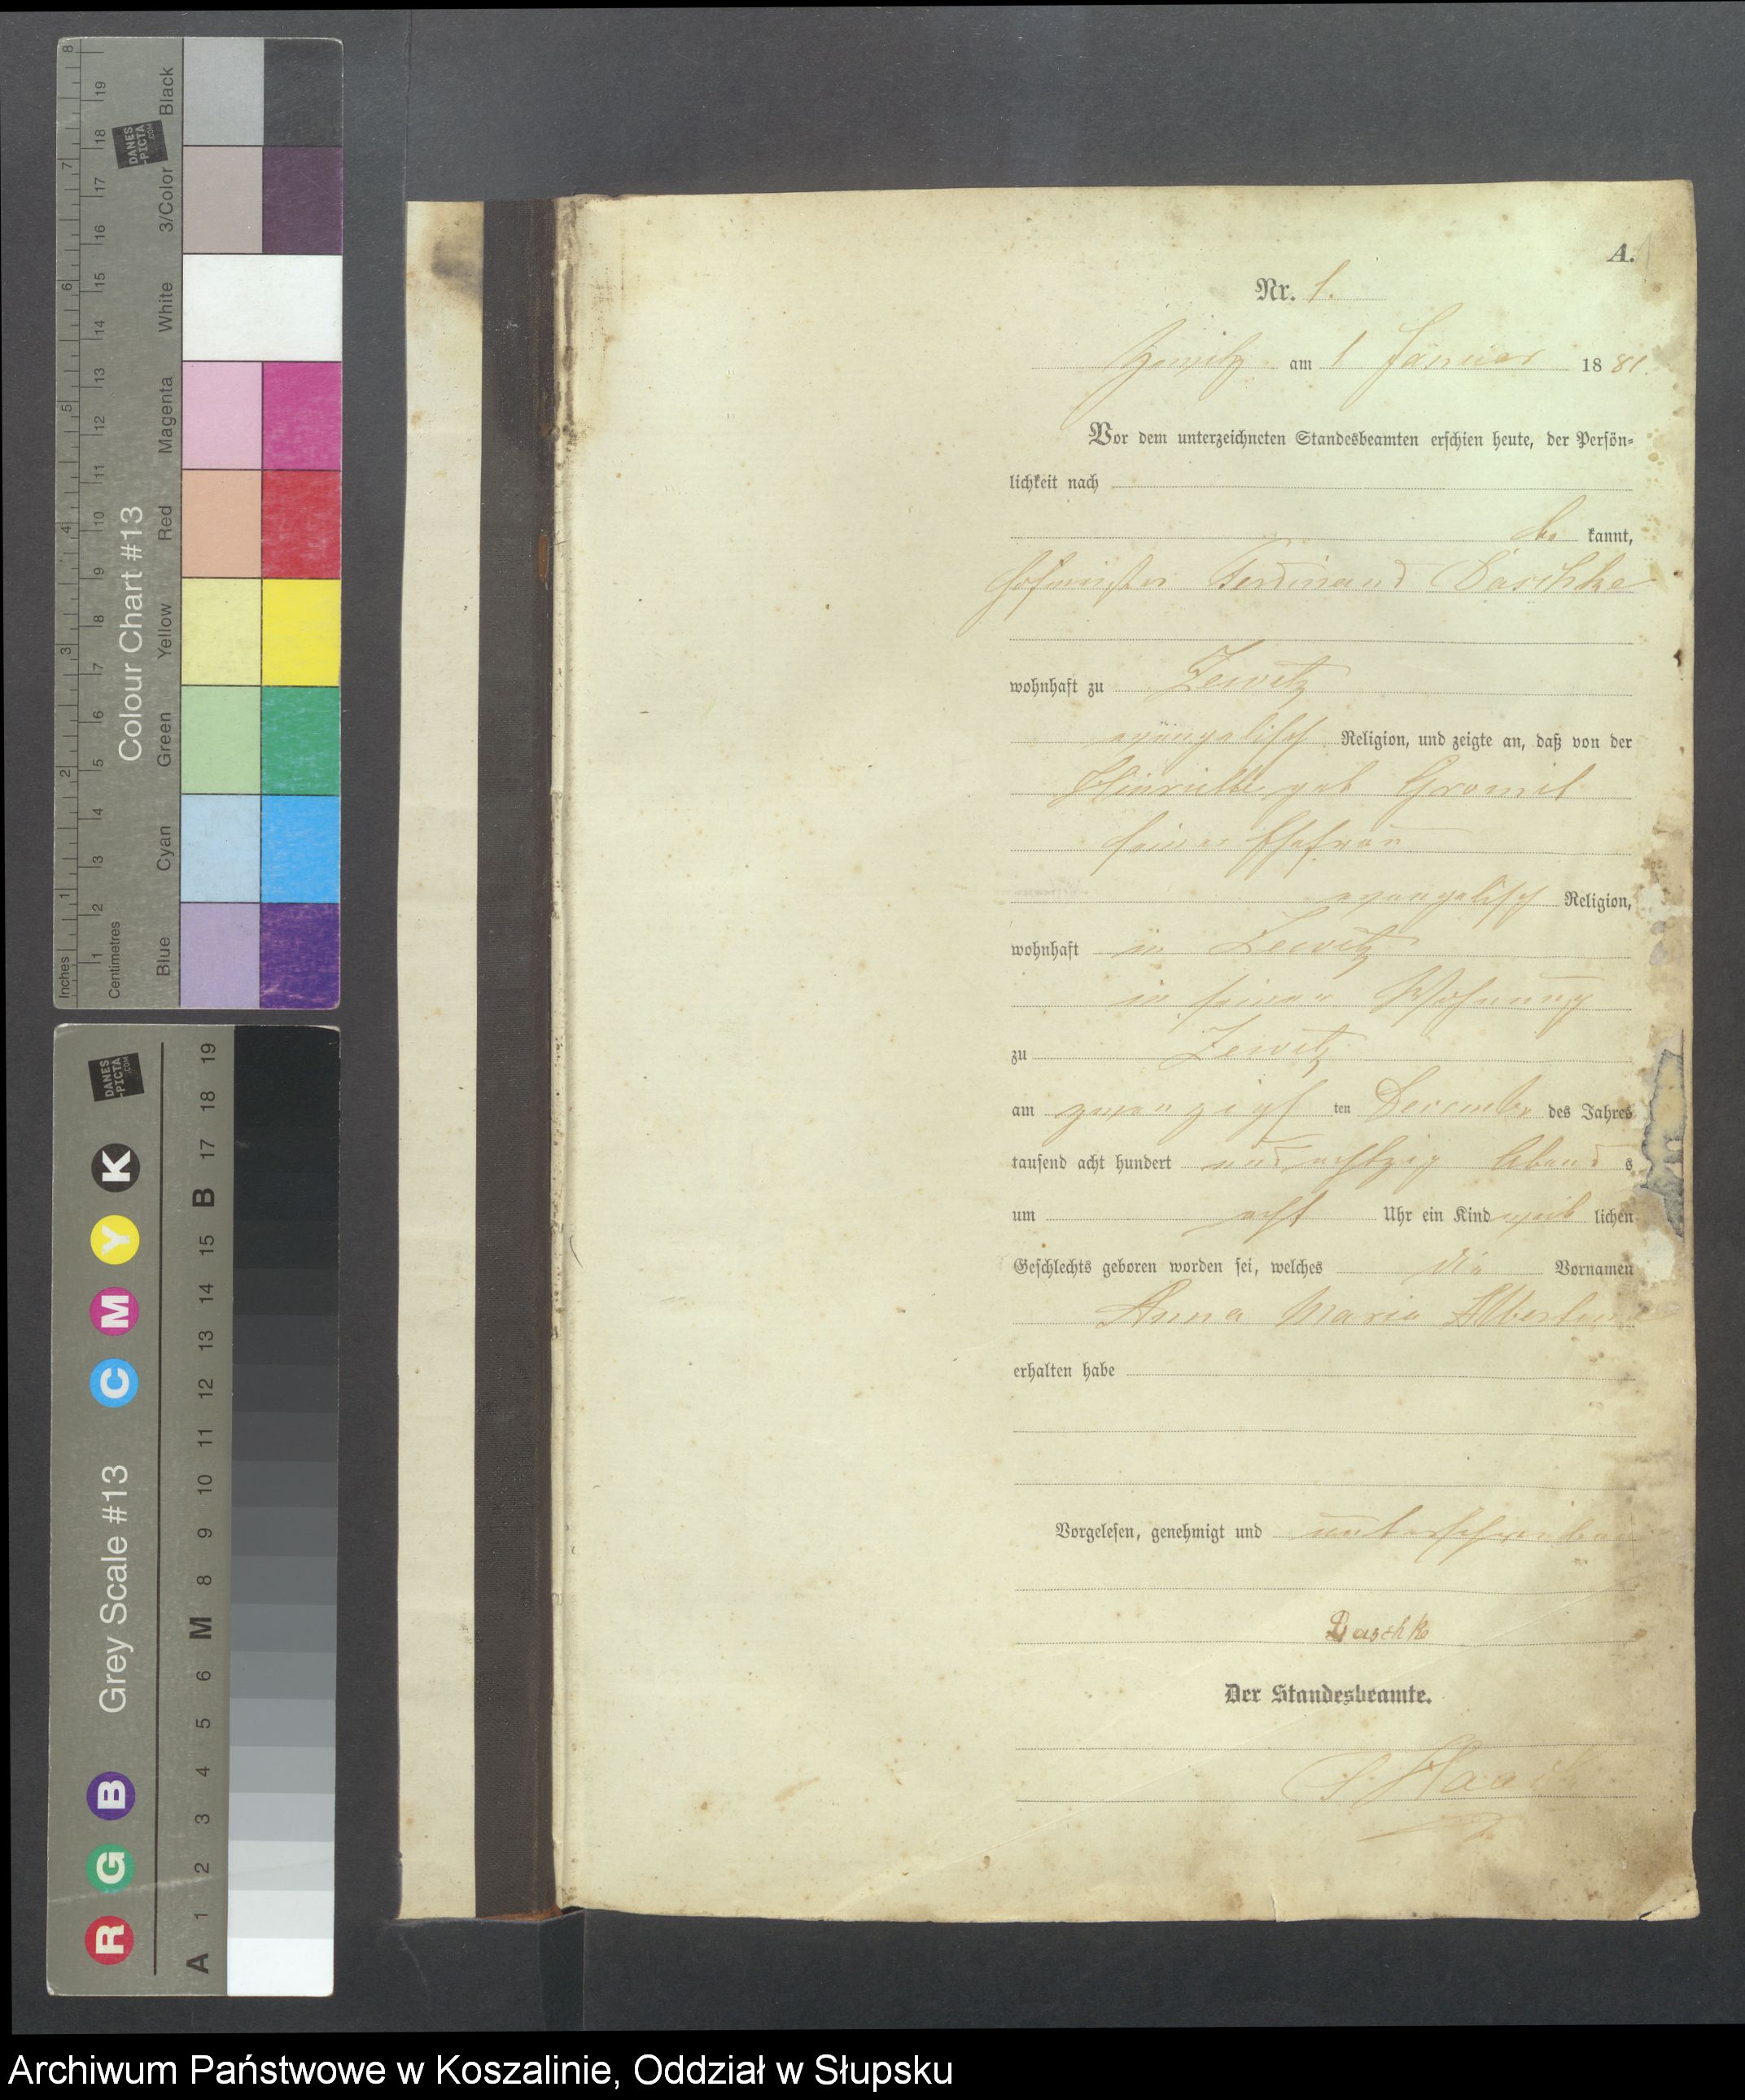 8
7
6
5
4
3
2
1
Inches
19
18
17
16
15
14
13
12
11
10
9
8
7
6
5
4
3
2
1
Centimetres
DANES
-PICTA
.COM
Colour Chart #13
Blue
Cyan
Green
Yellow
Red
Magenta
White
3/Color
Black
DANES
-PICTA
.COM
Grey Scale #13
R
G
B
C
M
Y
K
A
1
2
3
4
5
6
M
8
9
10
11
12
13
14
15
B
17
18
19
A.
Nr. 1.
Zewitz am 1 Januar 1881.
Vor dem unterzeichneten Standesbeamten erschien heute, der Persön-
lichkeit nach
be kannt,
Hofmeister Ferdinand Daschke
wohnhaft zu Zewitz
evangelisch Religion, und zeigte an, daß von der
geb
seiner Ehefrau
evangelisch Religion,
wohnhaft in Zewitz
in seiner Wohnung
zu Zewitz
am zwanzigs ten December des Jahres
tausend acht hundert und achtzig Abend s
um acht Uhr ein Kind weib lichen
Geschlechts geboren worden sei, welches die Vornamen
Anna Maria Albertine
erhalten habe
Vorgelesen, genehmigt und unterschrieben
Daschke
Der Standesbeamte.
Archiwum Państwowe w Koszalinie, Oddział w Słupsku